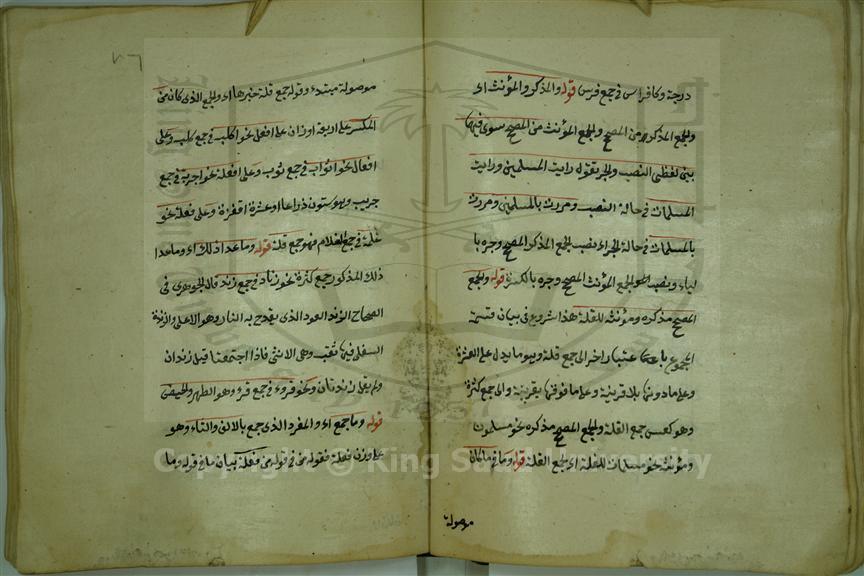 درجة وكافراس في جمع فرس قوله والمذكر والمؤنث اى
والجمع المذكر من المصحح والجمع المؤنث من المصحح سوى فيها
بين لفظى النصب والجر تقول رايت المسلمين ورايت
المسلمات في حالة النصب ومررت بالمسلمين ومررت
بالمسلمات في حالة الجر اى نصب الجمع المذكر المصحح وجره با
لياء ونصب الجمع المؤنث المصحح وجره بالكسرة قوله والجمع
المصحح مذكره ومؤنثه للقلة هذا شروع في بيان قسمة
الجموع باعتبار اخر الى جمع قلة وهو ما يدل على العشرة
وعلى ما دونها بلا قرينة وعلى ما فوقها بقرينة والى جمع كثرة
وهو كعسى جمع القلة والجمع المصحح مذكره نحو مسلمون
ومؤنثه نحو مسلمات للقلة اى لجمع القلة قوله وما في ما كان
موصولة
موصولة مبتدء وقوله جمع قلة خبرها اى والجمع الذى كان من
المكسر على اربعة اوزان على افعل نحو اكلب في جمع كلب وعلى
افعال نحو اثواب في جمع ثوب وعلى افعلة نحو اجربة في جمع
جريب وهو ستون ذراعا وعشرة اقفزة وعلى فعلة نحو
غلمة في جمع الغلام فهو جمع قلة قوله وما عدا ذلك اى وما عدا
ذلك المذكور جمع كثرة نحو زناد في جمع زند قال الجوهرى فى
الصحاح الزند العود الذى يقدح به النار وهو الاعلى والزندة
السفلى فيها ثقب وهى الانثى فاذا اجتمعتا قيل زندان
ولم يقل زندتان ونحو قروء في جمع قرء وهو الطهر والحيض
قوله وما جمع اى والمفرد الذى جمع بالالف والتاء وهو
على وزن فعلة فقوله من في قوله من فعلة بيان ما في قوله وما
Copyright © King Saud University